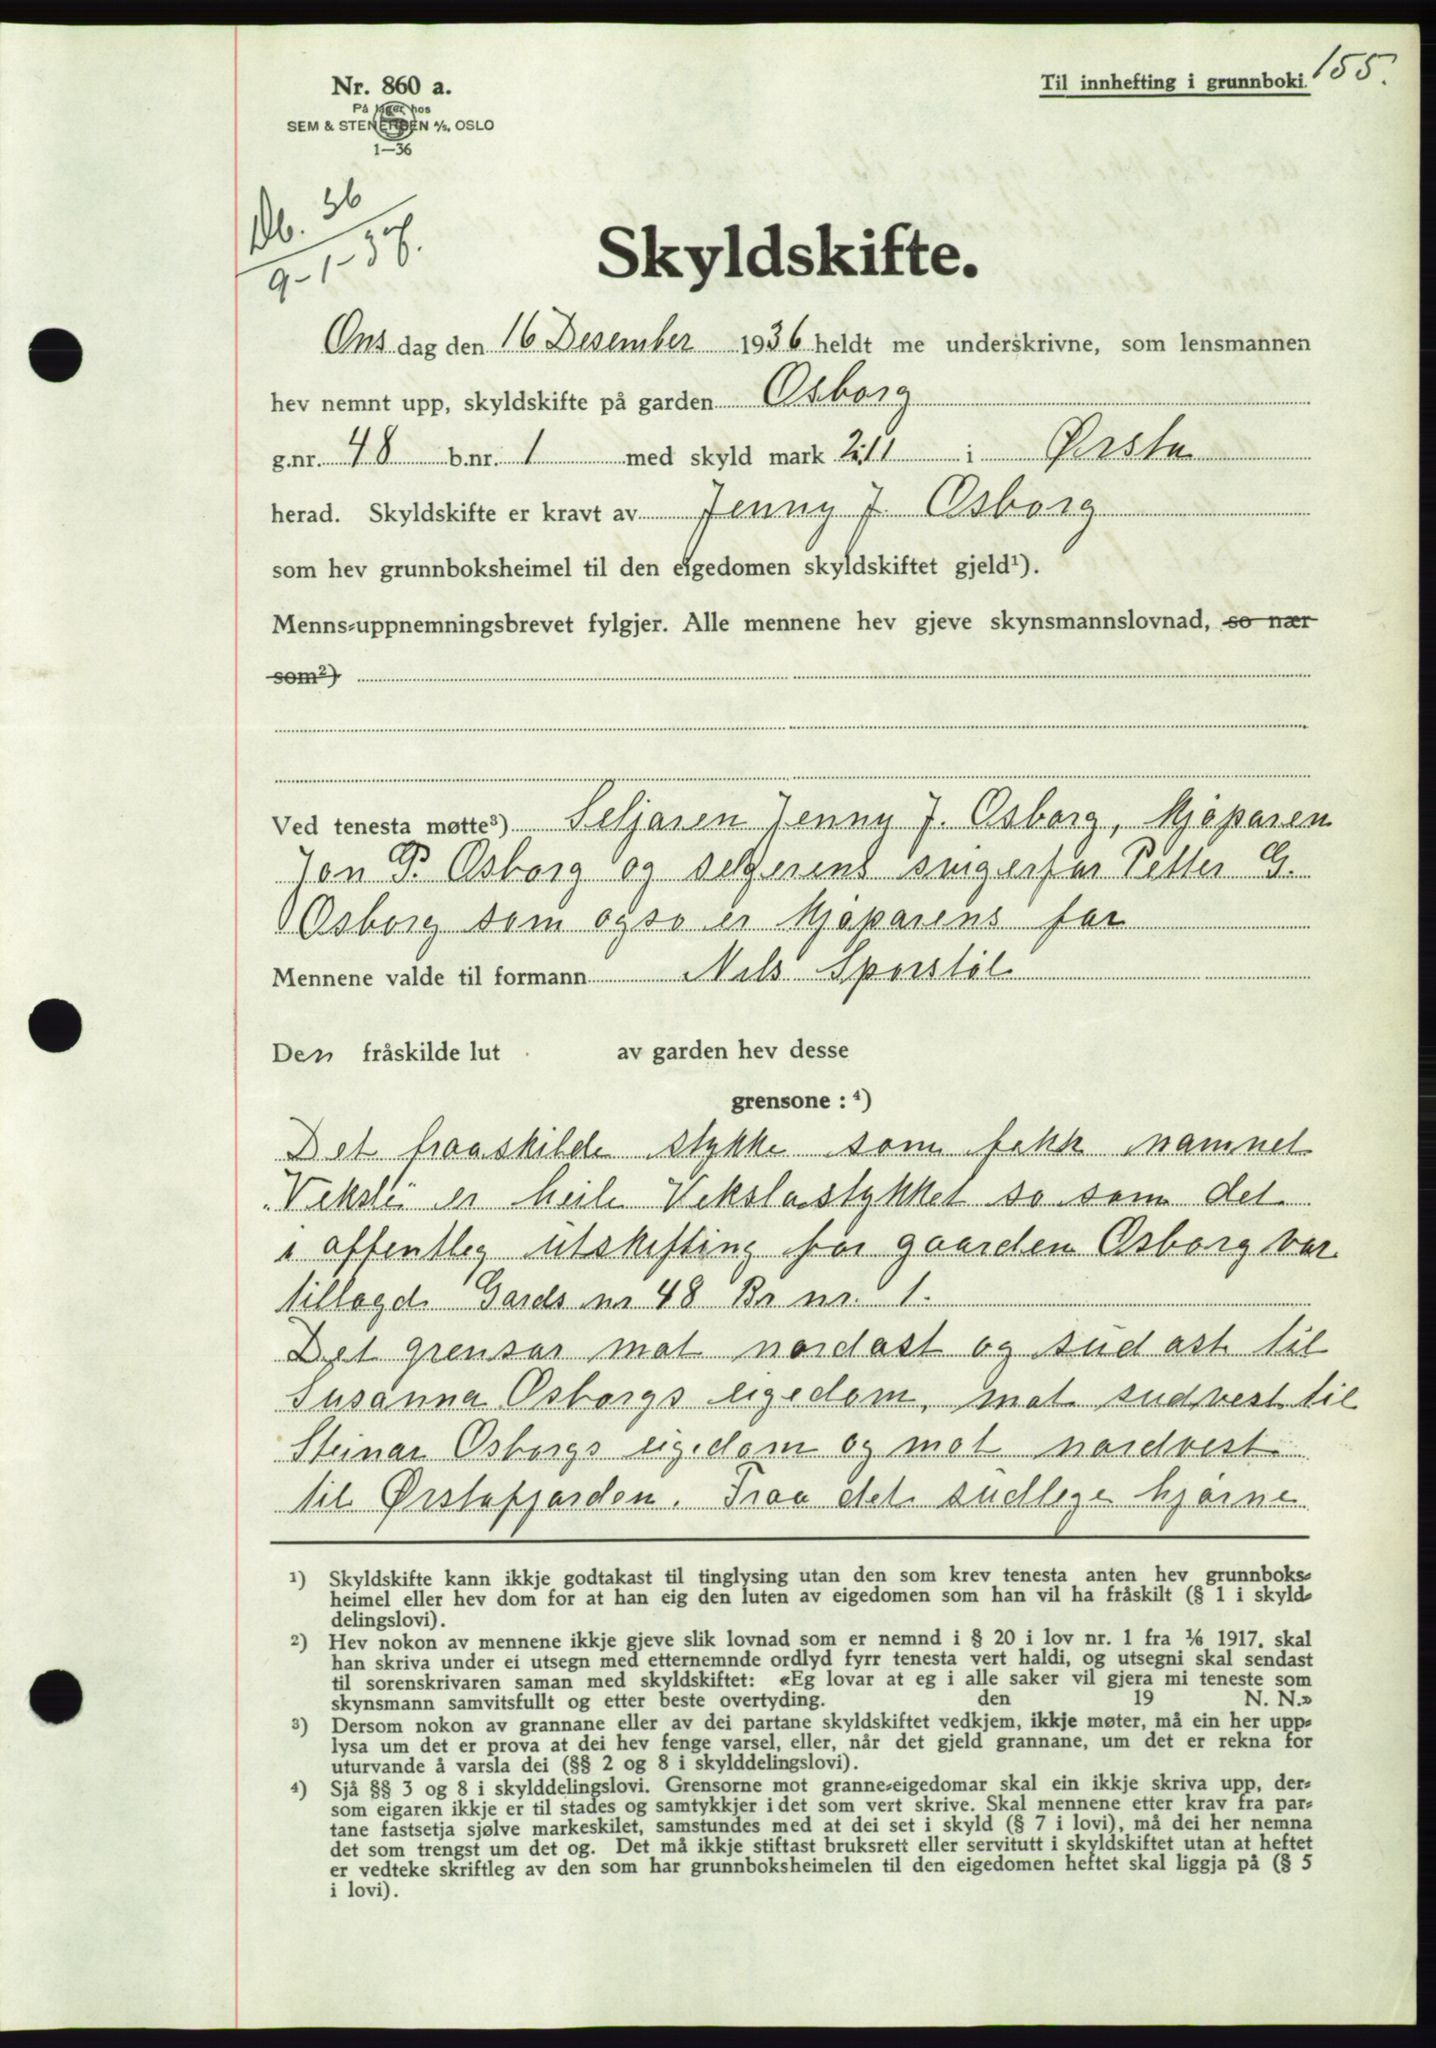 155.
Nr. 860 a.
På lager hos
SEM & STENERSEN A/S, OSLO
1—36
Til innhefting i grunnboki.
Db. 36
9-1-37.
Skyldskifte.
Onsdag den 16 Desember 1936 heldt me underskrivne, som lensmannen
hev nemnt upp, skyldskifte på garden Osborg
g.nr. 48 b.nr. 1 med skyld mark 2.11 i Ørsta
herad. Skyldskifte er kravt av Jenny J. Osborg
som hev grunnboksheimel til den eigedomen skyldskiftet gjeld¹).
Menns-uppnemningsbrevet fylgjer. Alle mennene hev gjeve skynsmannslovnad, so nær
som²)
Ved tenesta møtte³) Seljaren Jenny J. Osborg, kjøparen
Jon P. Osborg og selgerens svigerfar Petter G.
Osborg som ogso er kjøparens far
Mennene valde til formann Nils Sporstøl
Den fråskilde lut av garden hev desse
grensone : ⁴)
Det fraaskilde stykke som fekk namnet
"Vekslå" er heile Vekslastykket so som det
i offentleg utskifting for gaarden Osborg var
tillagd Gards nr 48 Br nr. 1.
Det grensar mot nordost og sudost til
Susanna Osborgs eigedom, mot sudvest til
Steinar Osborgs eigedom og mot nordvest
til Ørstafjorden. Fraa det sudlege hjørne
¹) Skyldskifte kann ikkje godtakast til tinglysing utan den som krev tenesta anten hev grunnboks-
heimel eller hev dom for at han eig den luten av eigedomen som han vil ha fråskilt (§ 1 i skyld-
delingslovi).
²) Hev nokon av mennene ikkje gjeve slik lovnad som er nemnd i § 20 i lov nr. 1 fra ⅟₆ 1917, skal
han skriva under ei utsegn med etternemnde ordlyd fyrr tenesta vert haldi, og utsegni skal sendast
til sorenskrivaren saman med skyldskiftet: «Eg lovar at eg i alle saker vil gjera mi teneste som
skynsmann samvitsfullt og etter beste overtyding. den 19 N. N.»
³) Dersom nokon av grannane eller av dei partane skyldskiftet vedkjem, ikkje møter, må ein her upp-
lysa um det er prova at dei hev fenge varsel, eller, når det gjeld grannane, um det er rekna for
uturvande å varsla dei (§§ 2 og 8 i skylddelingslovi).
⁴) Sjå §§ 3 og 8 i skylddelingslovi. Grensorne mot granne-eigedomar skal ein ikkje skriva upp, der-
som eigaren ikkje er til stades og samtykkjer i det som vert skrive. Skal mennene etter krav fra par-
tane fastsetja sjølve markeskilet, samstundes med at dei set i skyld (§ 7 i lovi), må dei her nemna
det som trengst um det og. Det må ikkje stiftast bruksrett eller servitutt i skyldskiftet utan at heftet
er vedteke skriftleg av den som har grunnboksheimelen til den eigedomen heftet skal liggja på (§ 5
i lovi).